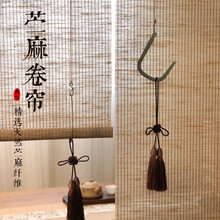 苎麻卷帘
精选天然苎麻纤维